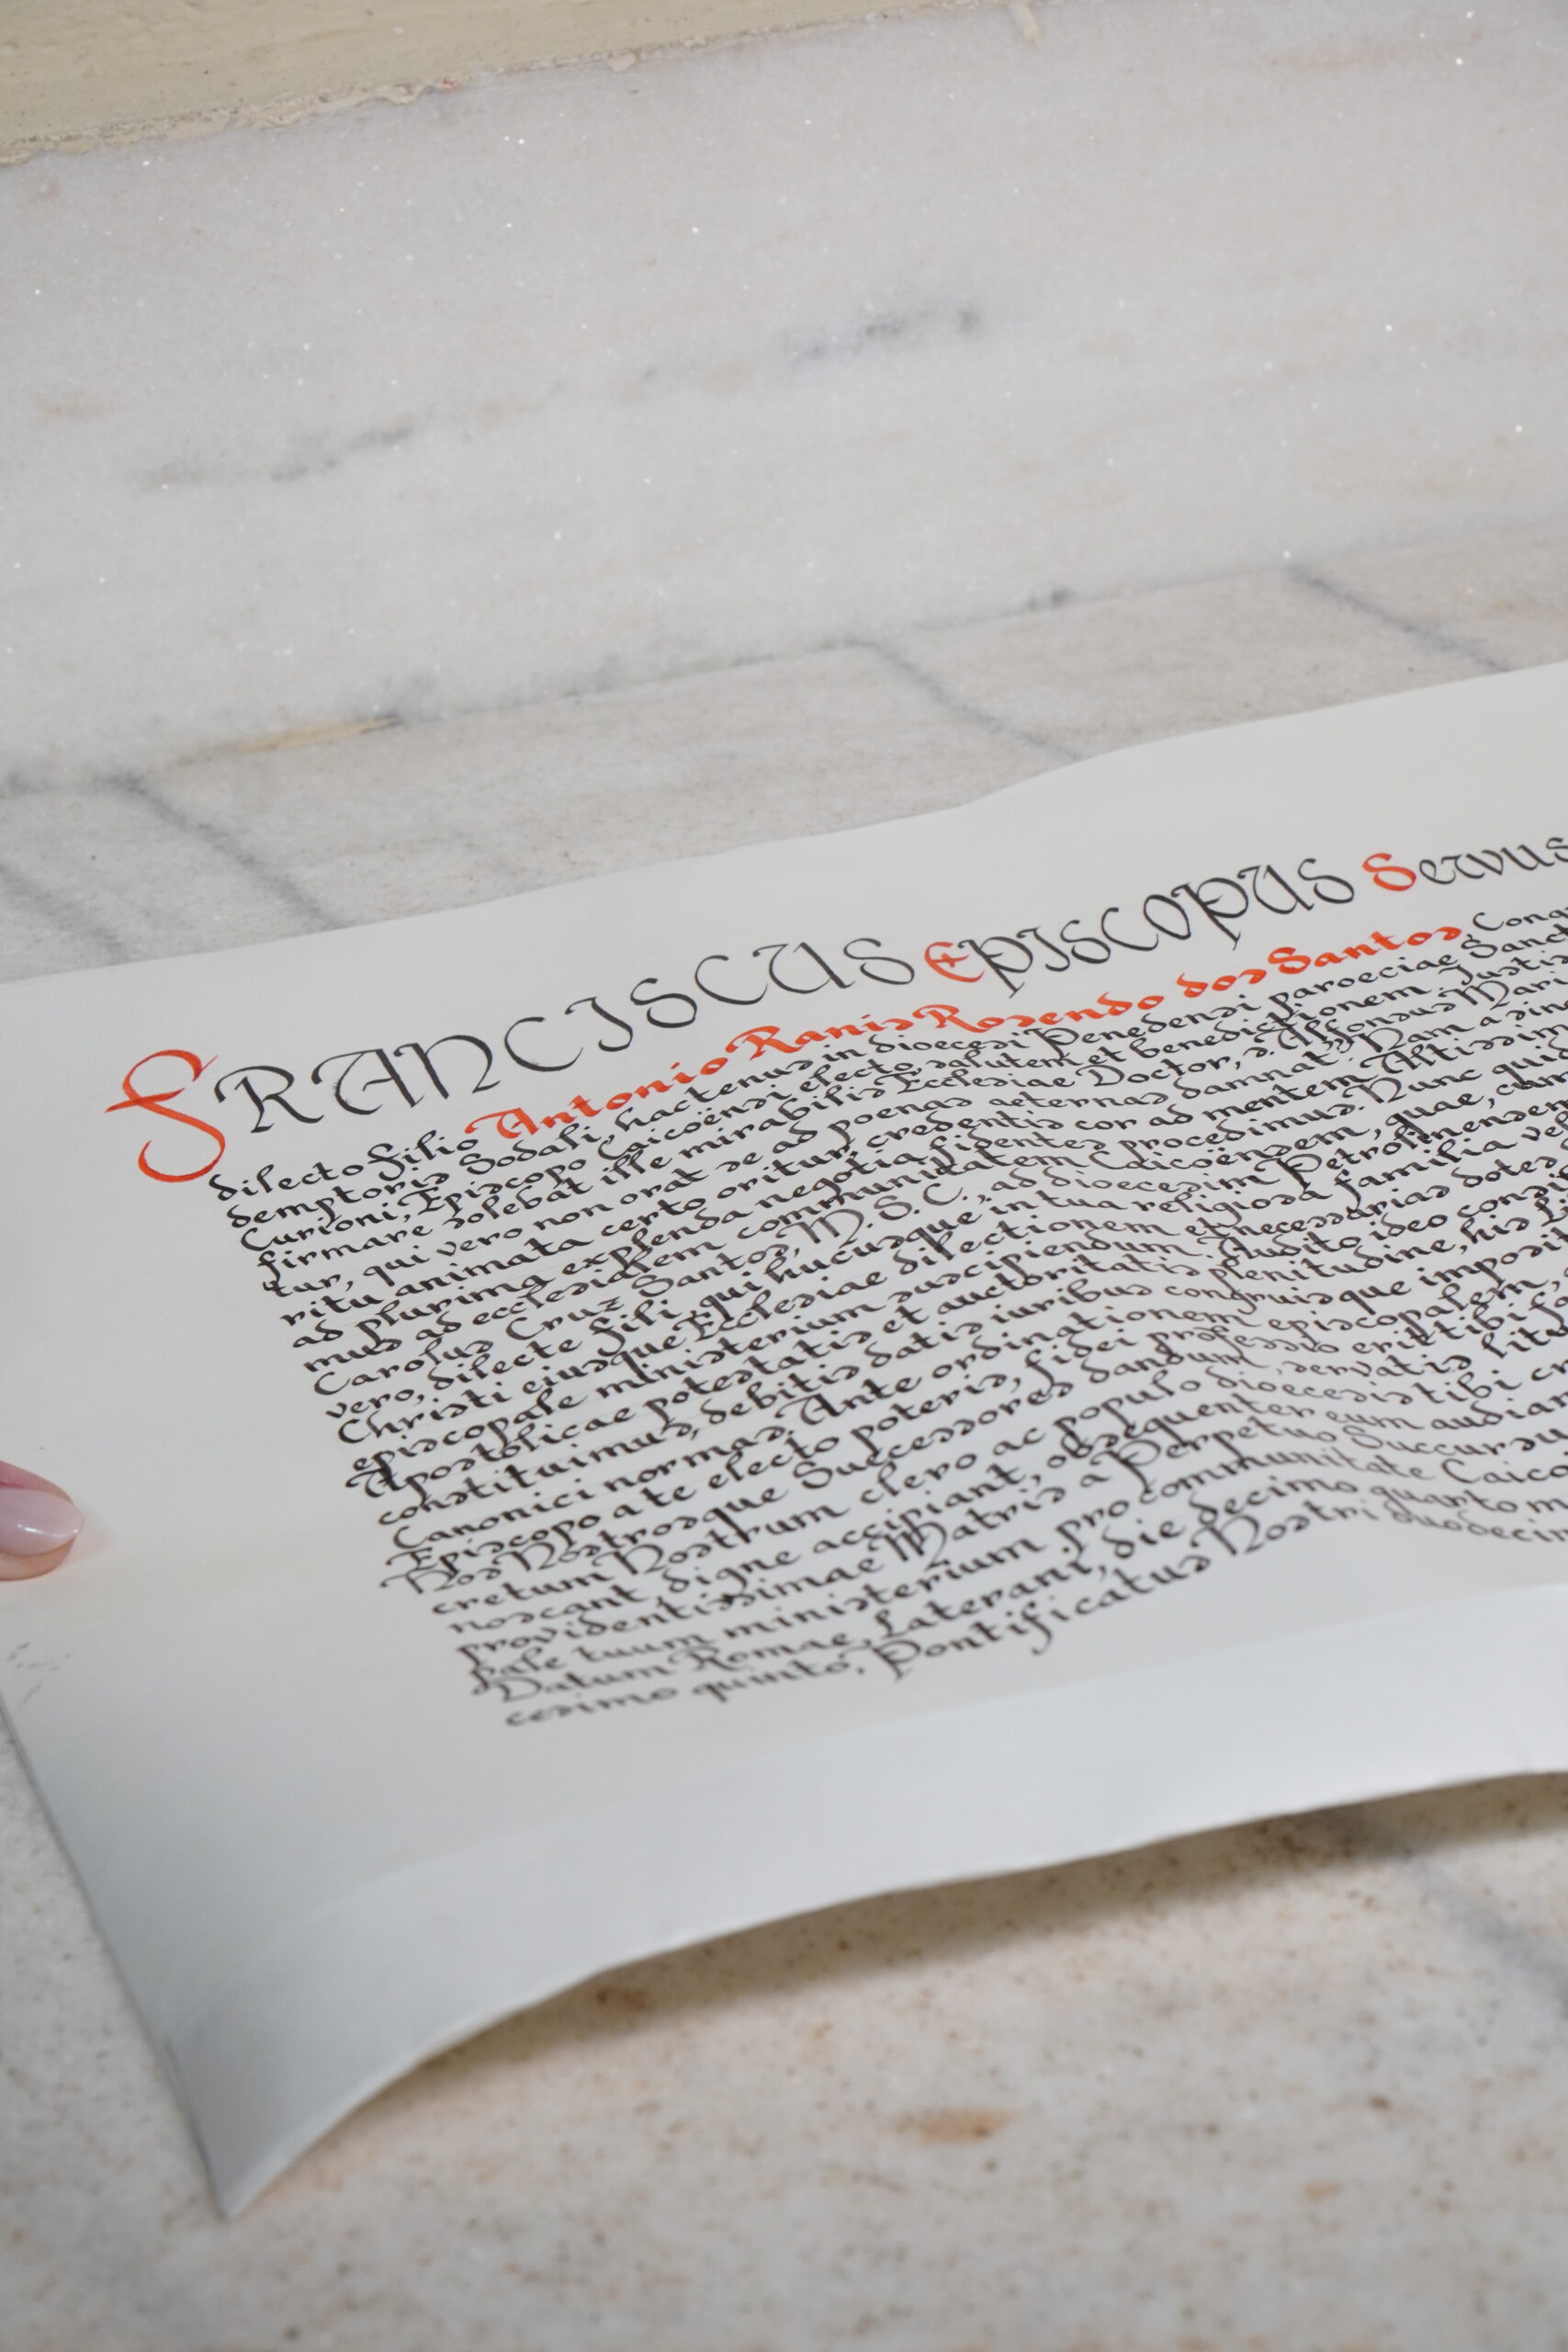 FRANCISCUS EPISCOPUS Servus
dilecto Filio Antonio Ranis Rosendo dos Santos, Cong
demptoris Sodali, hactenus in dioecesi Penedensi paroeciae Sanct
Curioni, Episcopo Caicoënsi electo, salutem et benedictionem. Justis
firmare solebat ille mirabilis Ecclesiae Doctor, s. Alfonsus Mari
tur, qui vero non orat se ad poenas aeternas damnat”. Nam a sin
ritu animata certo oritur credentis cor ad mentem Altissim
ad plurima explenda negotia fidentes procedimus. Nunc quid
mus ad ecclesialem communitatem Caicoënsem, quae, cum
Carolus Cruz Santos, M. S. C., ad dioecesim Petrolinensem
vero, dilecte fili, qui hucusque in tua religiosa familia vel
Christi eiusque Ecclesiae dilectionem et necessarias dotes
episcopale ministerium suscipiendum. Audito ideo consi
Apostolicae potestatis et auctoritatis plenitudine, his Li
constituimus, debitis datis iuribus congruisque imposit
Canonici normas. Ante ordinationem episcopalem,
Episcopo a te electo poteris, fidei professio erit tibi fa
Nos Nostrosque Successores dandum, servatis litu
cretum Nostrum clero ac populo dioecesis tibi cr
noscant, digne accipiant, obsequenter eum audian
providentissimae Matris a Perpetuo Succursu
pale tuum ministerium pro communitate Caico
Datum Romae, Laterani, die decimo quarto m
cesimo quinto, Pontificatus Nostri duodecim